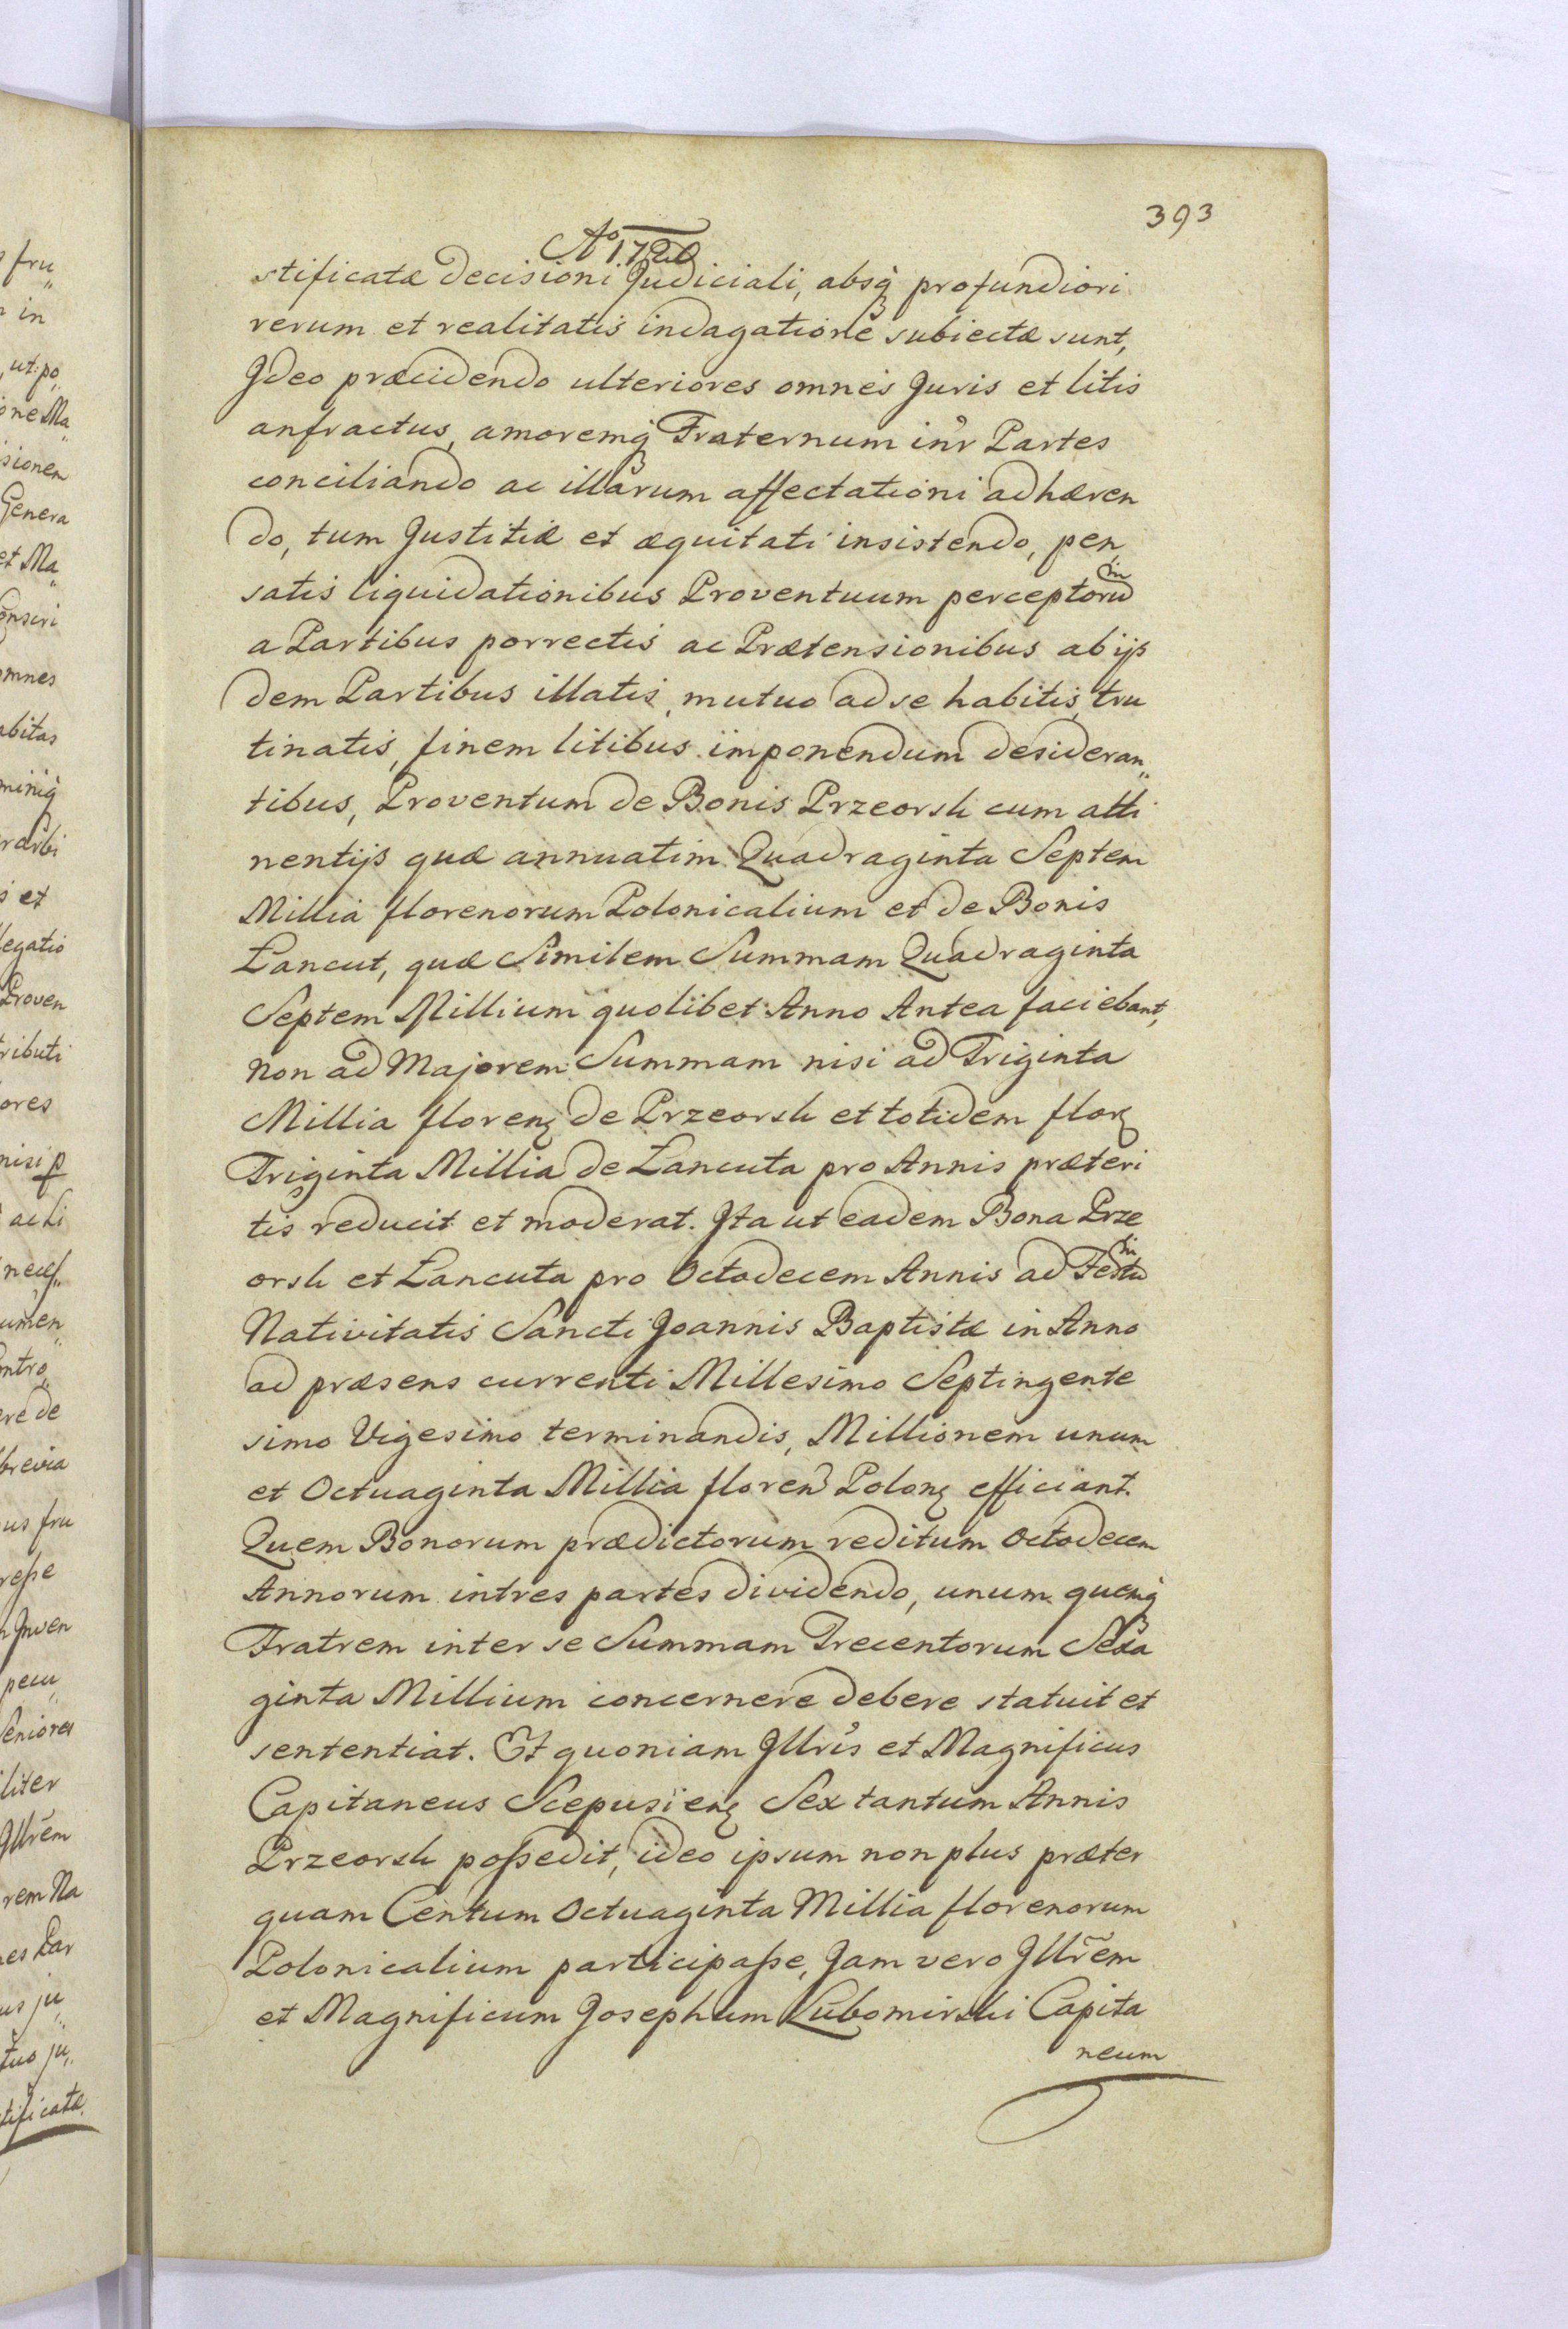 393
Aº 1720
stificatæ decisioni Judiciali, absq profundiori
rerum et realitatis indagatione subiectæ sunt,
Ideo præcidendo ulteriores omnes Juris et litis
anfractus, amoremq Fraternum inr Partes
conciliando ac illarum affectationi adhæren
do, tum Justitiæ et æquitati insistendo, pen„
satis liquidationibus Proventuum perceptorum
a Partibus porrectis ac Prætensionibus ab ijs
dem Partibus illatis, mutuo ad se habitis, tru
tinatis, finem litibus imponendum desideran„
tibus, Proventum de Bonis Przeorsk cum atti
nentijs quæ annuatim Quadraginta Septem
Millia florenorum Polonicalium et de Bonis
Łancut, quæ Similem Summam Quadraginta
Septem Millium quolibet Anno Antea faciebant,
non ad Majorem Summam nisi ad Triginta
Millia floren de Przeorsk et totidem flor
Triginta Millia de Łancuta pro Annis præteri
tis reducit et moderat. Ita ut eadem Bona Prze
orsk et Łancuta pro Octodecem Annis ad Festum
Nativitatis Sancti Joannis Baptistæ in Anno
ad præsens currenti Millesimo Septingente
simo Vigesimo terminandis, Millionem unum
et Octuaginta Millia floren Polon efficiant.
Quem Bonorum prædictorum reditum Octodecem
Annorum in tres partes dividendo, unum quemq
Fratrem inter se Summam Trecentorum Sexa
ginta Millium concernere debere statuit et
sententiat. Et quoniam Illris et Magnificus
Capitaneus Scepusien Sex tantum Annis
Przeorsk possedit, ideo ipsum non plus præter
quam Centum Octuaginta Millia florenorum
Polonicalium participasse, Jam vero Illrem
et Magnificum Josephum Lubomirski Capita
neum